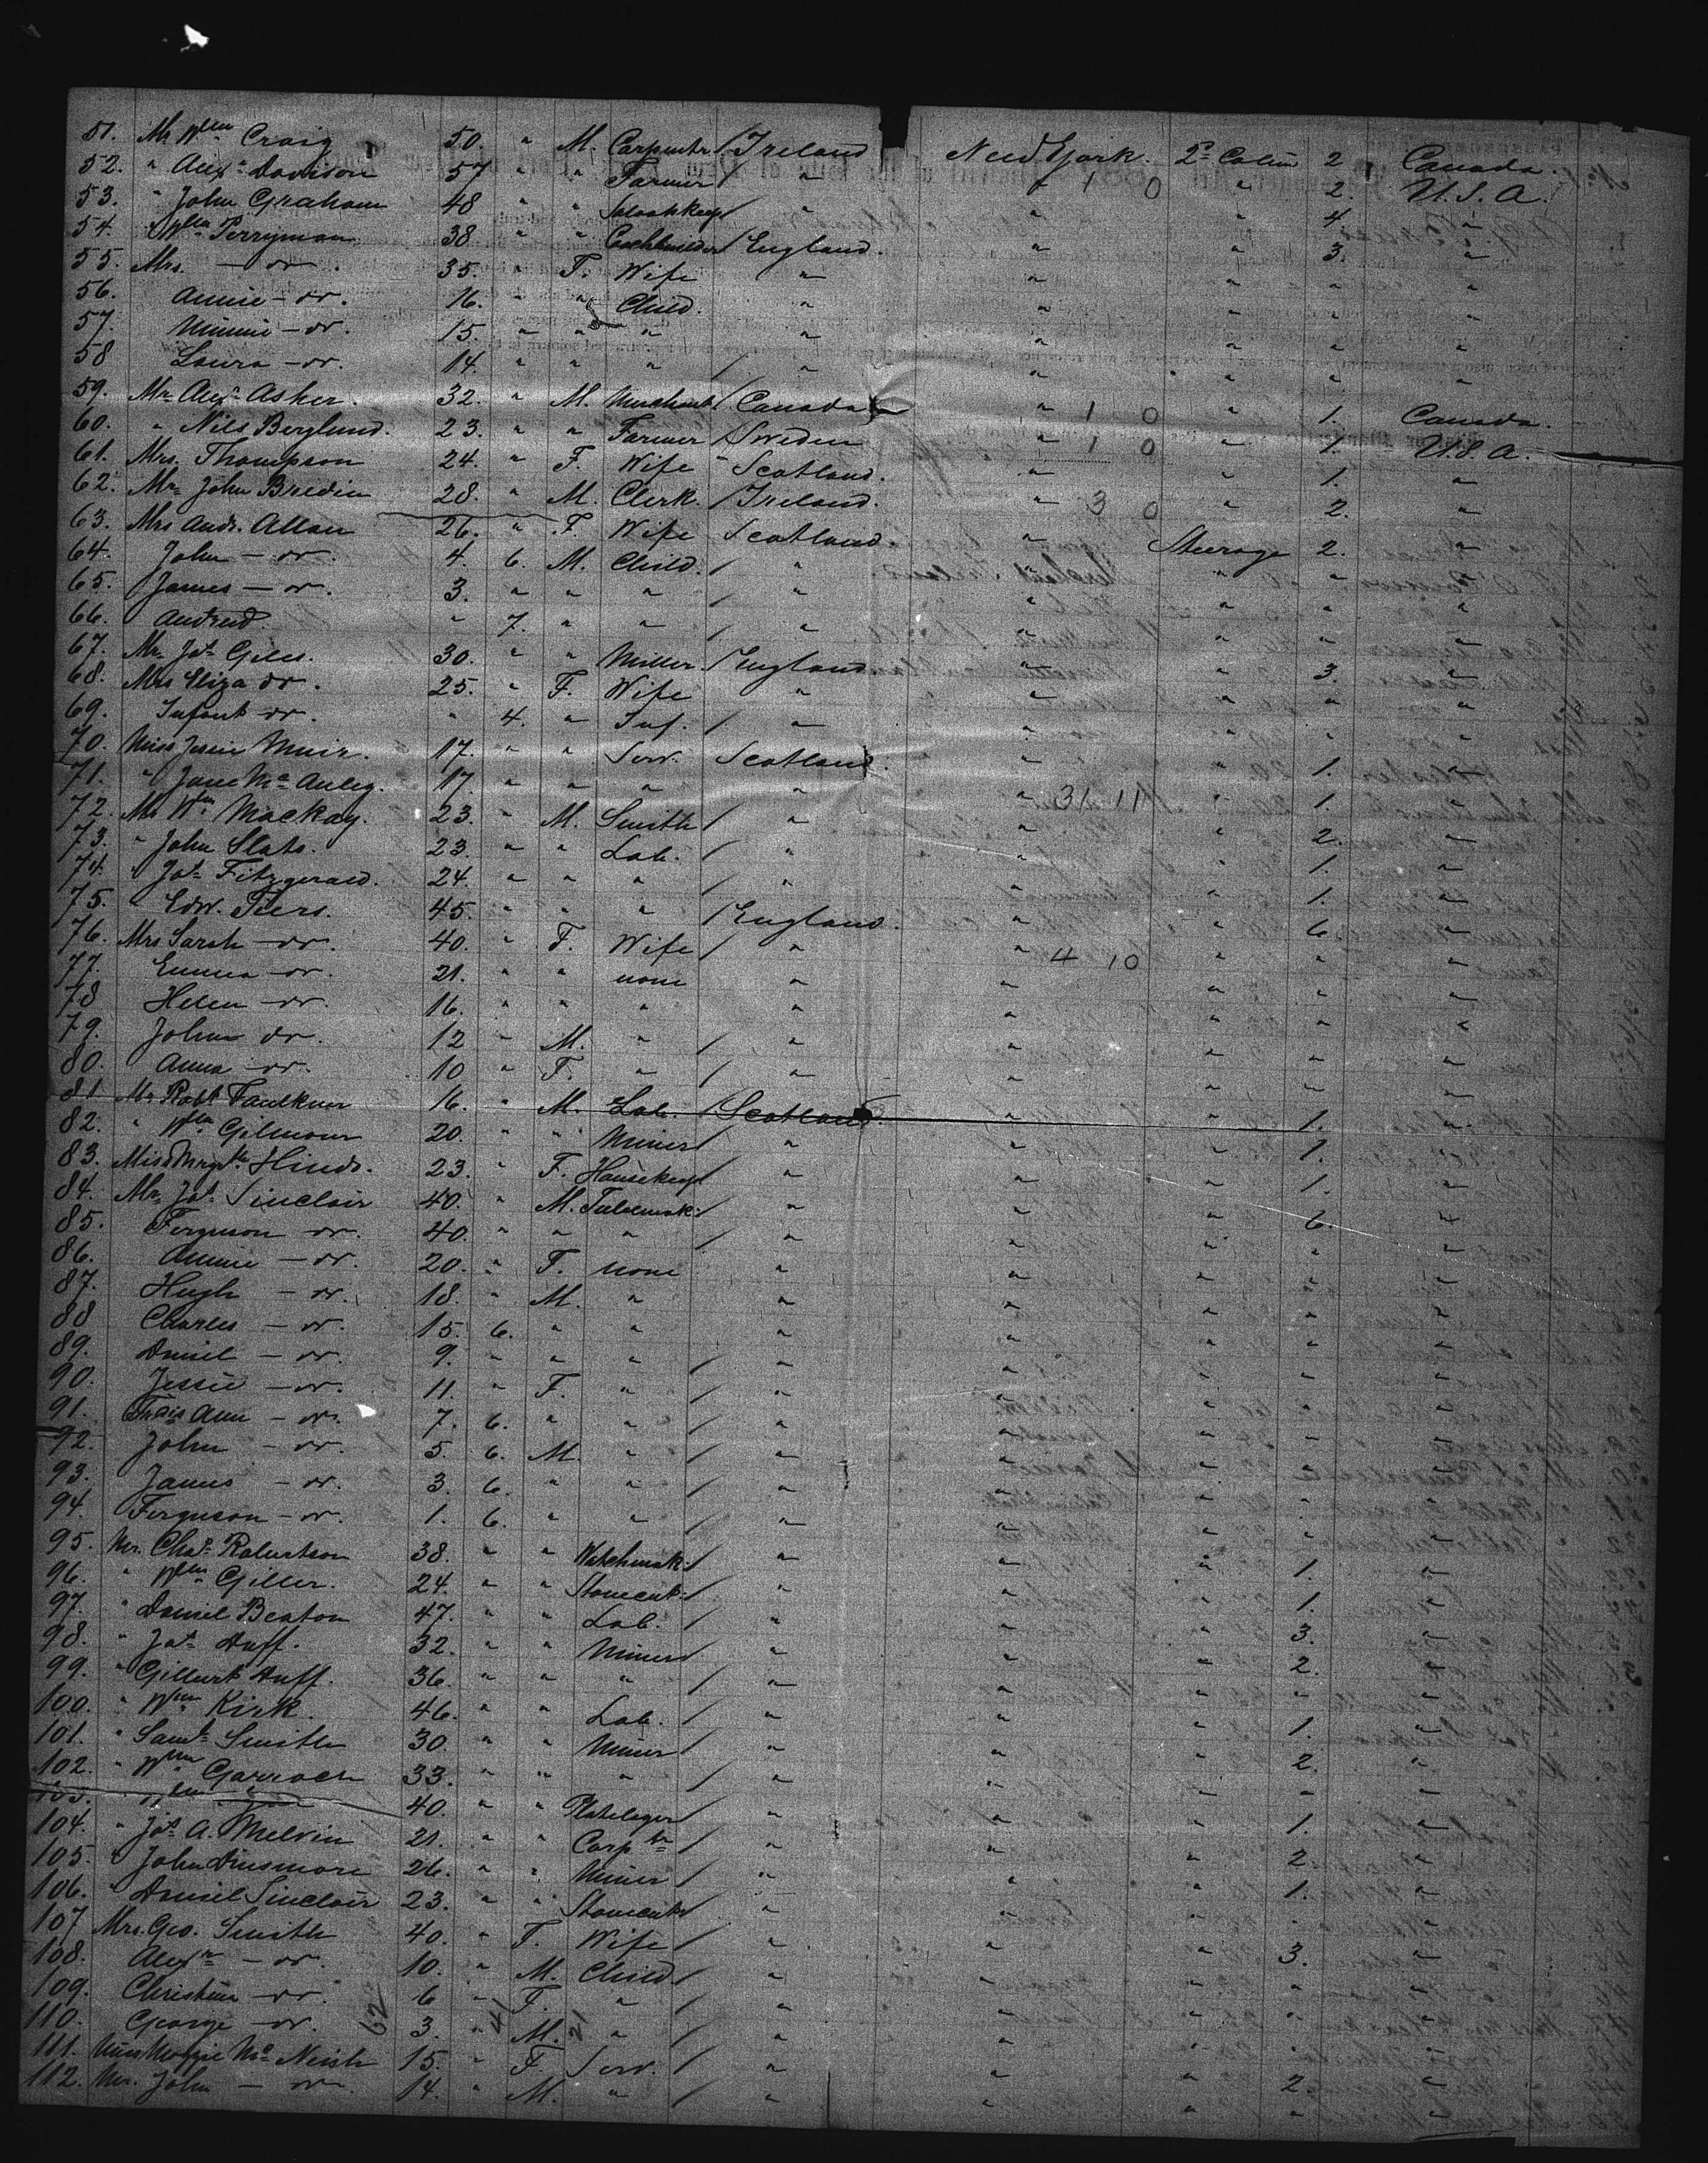 51. Mr. Wm Craig 50. " M. Carpentr / Ireland New York. 2d Cabin 2 Canada.
52. " Alexr Davison 57 " " Farmer / " " 1 0 " 2. U.S.A.
53. " John Graham 48 " " / " " " 4. "
54. " Wm Perryman 38. " " Coachbuilder / England. " " 3. "
55. Mrs. — do. 35. " F. Wife " " " " "
56. Annie — do. 16. " " Child. " " " " "
57. Minnie — do. 15. " " " " " " " "
58 Laura — do. 14. " " " / " " " " "
59. Mr. Alexr Asher. 32. " M. Merchant / Canada " 1 0 " 1. Canada.
60. " Nils Berglund. 23. " " Farmer / Sweden " 1 0 " 1. U.S.A.
61. Mrs. Thompson 24. " F. Wife " Scotland. " " 1. "
62. Mr. John Bredin 28. " M. Clerk. / Ireland. " 3 0 " 2. "
63. Mrs Andr. Allan 26. " F. Wife Scotland. " Steerage 2. "
64. John — do. 4. 6. M. Child. / " " " " "
65. James — do. 3. " " " / " " " " "
66. Andrew do. " 7. " " / " " " " "
67. Mr. Jas. Giles. 30. " " Miller. / England " " 3. "
68. Mrs Eliza do. 25. " F. Wife " " " " "
69. Infant do. " 4. " Inf. / " " " " "
70. Miss Jessie Muir. 17. " " Serv. Scotland. " " 1. "
71. " Jane McAuley. 17. " " " " " 31 11 " 1. "
72. Mr Wm Mackay. 23. " M. Smith / " " " 2. "
73. " John Slats. 23. " " Lab. / " " " 1. "
74. " Jas. Fitzgerald. 24. " " " / " " " 1. "
75. " Edw. Piers. 45. " " " / England. " " 6. "
76. Mrs Sarah — do. 40. " F. Wife / " " 4 10 " " "
77. Emma — do. 21. " " none " " " " "
78 Helen — do. 16. " " " " " " " "
79. John do. 12 " M. " / " " " " "
80. Anna — do. 10 " F. " / " " " " "
81 Mr Robt Faulkner 16. " M. Lab. / Scotland. " " 1. "
82. " Wm Gilmour 20. " " Miner / " " " 1. "
83. Miss Mrgt Hinds. 23. " F. Housekeepr / " " " 1. "
84. Mr. Jas. Sinclair 40. " M. / " " " 6. "
85. Ferguson do. 40. " " " / " " " " "
86. Annie — do. 20. " F. none " " " " "
87. Hugh — do. 18. " M. " " " " " "
88 Charles — do. 15. 6. " " " " " " "
89. Daniel — do. 9. " " " / " " " " "
90. Jessie — do. 11. " F. " / " " " " "
91. Ann — do. 7. 6. " " / " " " " "
92. John — do. 5. 6. M. " / " " " " "
93. James — do. 3. 6. " " / " " " " "
94. Ferguson — do. 1. 6. " " / " " " " "
95. Mr. Chas. Robertson 38. " " Watchmak: / " " " 1. "
96. " Wm Giller. 24. " " Stonecut: / " " " 1. "
97. " Daniel Beaton 47. " " Lab. / " " " 3. "
98. " Jas. Duff. 32. " " Miner / " " " 2. "
99. " Gilbert Duff. 36. " " " / " " " " "
100. " Wm Kirk. 46. " " Lab. / " " " 1. "
101. " Saml. Smith 30. " " Miner / " " " 2. "
102. " Wm Garroch 33. " " " / " " " " "
103. " Wm 40. " " Platelayer / " " " 1. "
104. " Jas. A. Melvin 21. " " Carptr / " " " 2. "
105. " John Dinsmore 26. " " Miner / " " " 1. "
106. " Daniel Sinclair 23. " " Stonecutr / " " " " "
107 Mrs. Geo. Smith 40. " F. Wife / " " " 3. "
108. Alexr — do. 10. " M. Child. / " " " " "
109. Christina — do. 6 " F. " / " " " " "
110. George — do. 3. " M. " / " " " " "
62 41 21
111. Miss Maggie McNeish 15. " F. Serv. / " " " 2. "
112. Mr. John — do. 14. " M. " / " " " " "